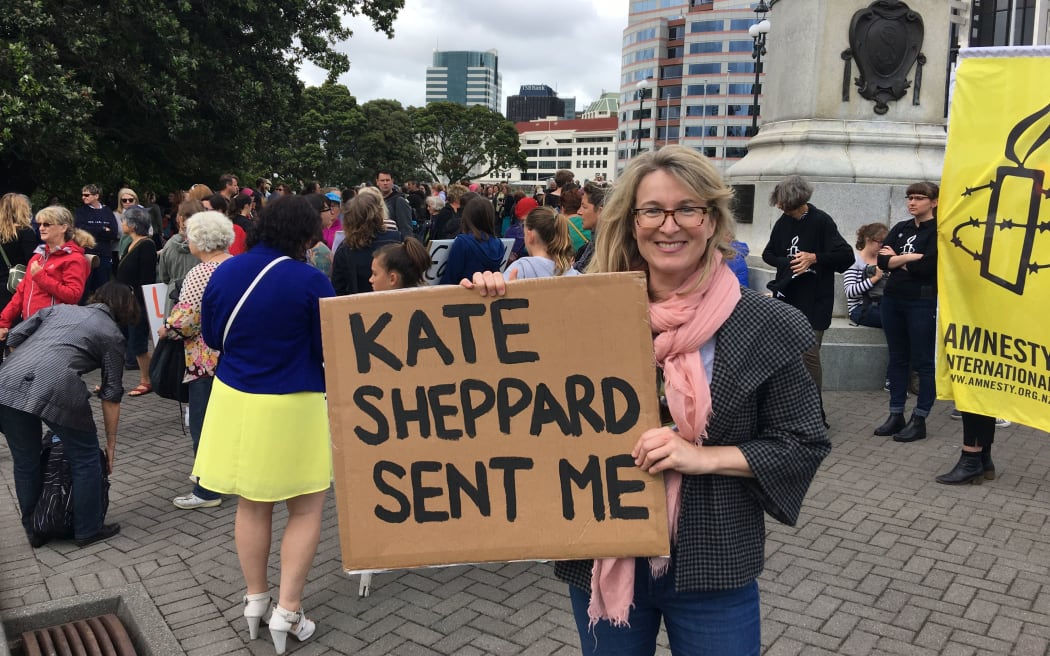 KATE
SHEPPARD
SENT ME
AMNESTY
INTERNATIONAL
WWW.AMNESTY.ORG.N
TSB Bank